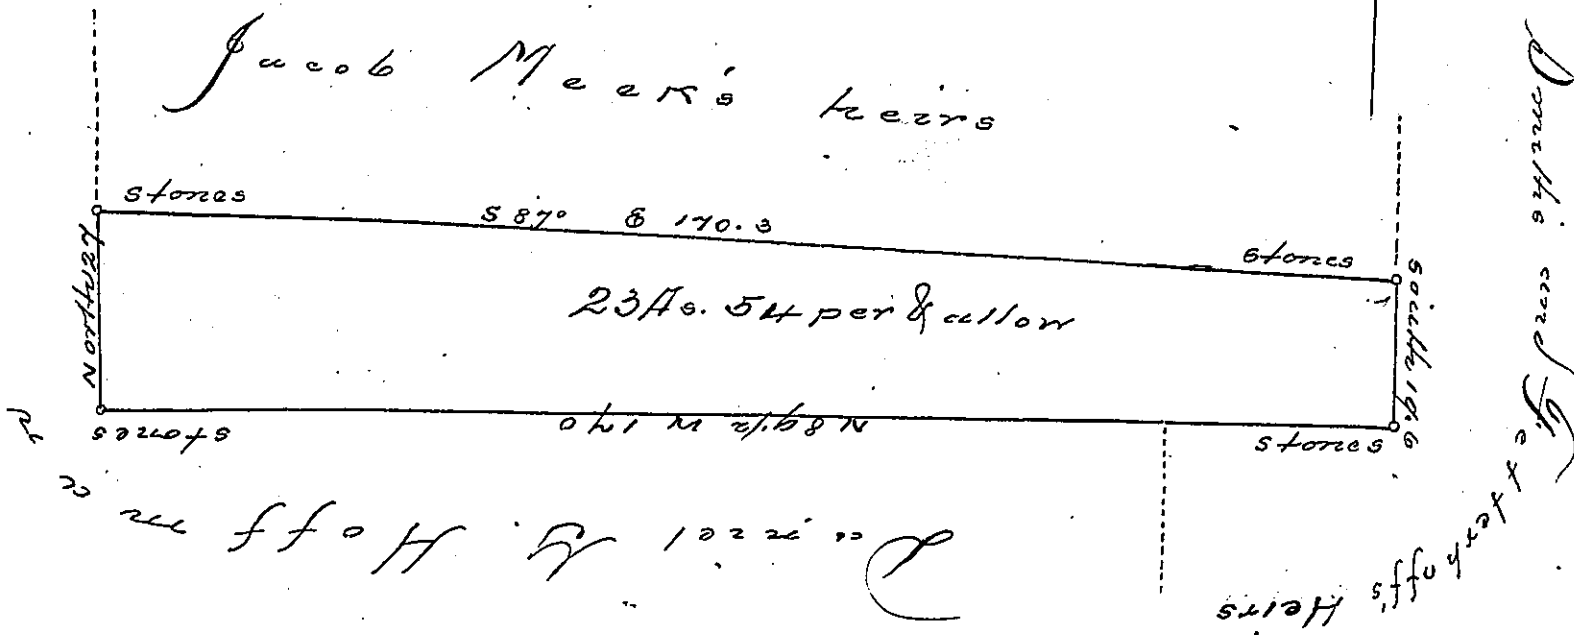 Jacob Meek's heirs
stones
S 87° E 170.3
stones
North 24
23 As. 54 per & allow
South 19.6
stones
N 89½ W 170
stones
Daniel G. Hoffman
and Getterhoff's
Heirs